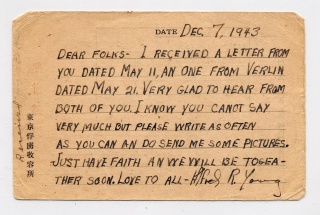 DATE DEC 7, 1943
DEAR FOLKS- I RECEIVED A LETTER FROM
YOU DATED MAY 11, AN ONE FROM VERLIN
DATED MAY 21. VERY GLAD TO HEAR FROM
BOTH OF YOU. I KNOW YOU CANOT SAY
VERY MUCH BUT PLEASE WRITE AS OFTEN
AS YOU CAN AN DO SEND ME SOME PICTURES.
JUST HAVE FAITH AN WE WILL BE TOGEA-
THER SOON. LOVE TO ALL- R. Young
東京俘虜收容所
Received